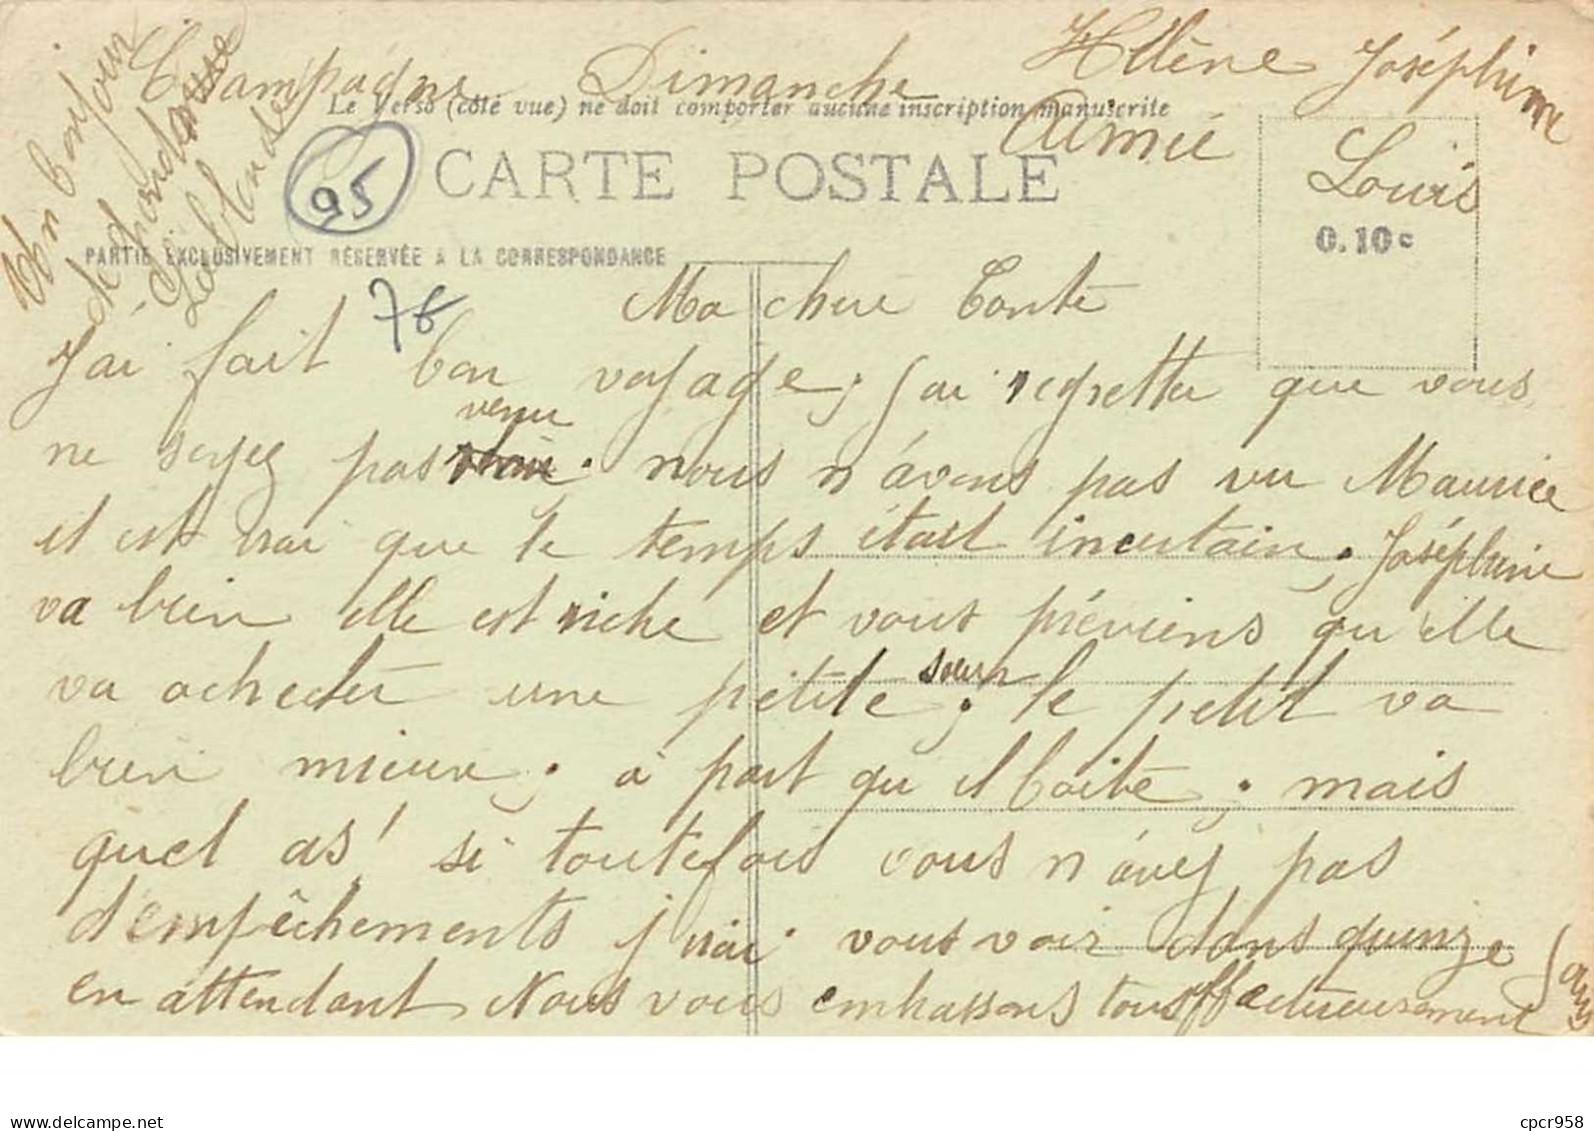 Champagne Dimanche
Hélène Joséphine
Aimée
Louis
Le Verso (côté vue) ne doit comporter aucune inscription manuscrite
CARTE POSTALE
0.10 c
95
PARTIE EXCLUSIVEMENT RÉSERVÉE A LA CORRESPONDANCE
76
Un bonjour
de
Ma chere Tante
J'ai fait bon voyage, j'ai regretter que vous
ne soyez pas venu. nous n'avons pas vu Maurice
il est vrai que le temps était incertain. Joséphine
va bien elle est riche et vous préviens qu'elle
va acheter une petite soeur, le petit va
bien mieux, à part qu'il boite, mais
quel as! si toutefois vous n'avez pas
d'empêchements j'irai vous voir dans quinze jours
en attendant Nous vous embrassons tous affectueusement
cpcr958